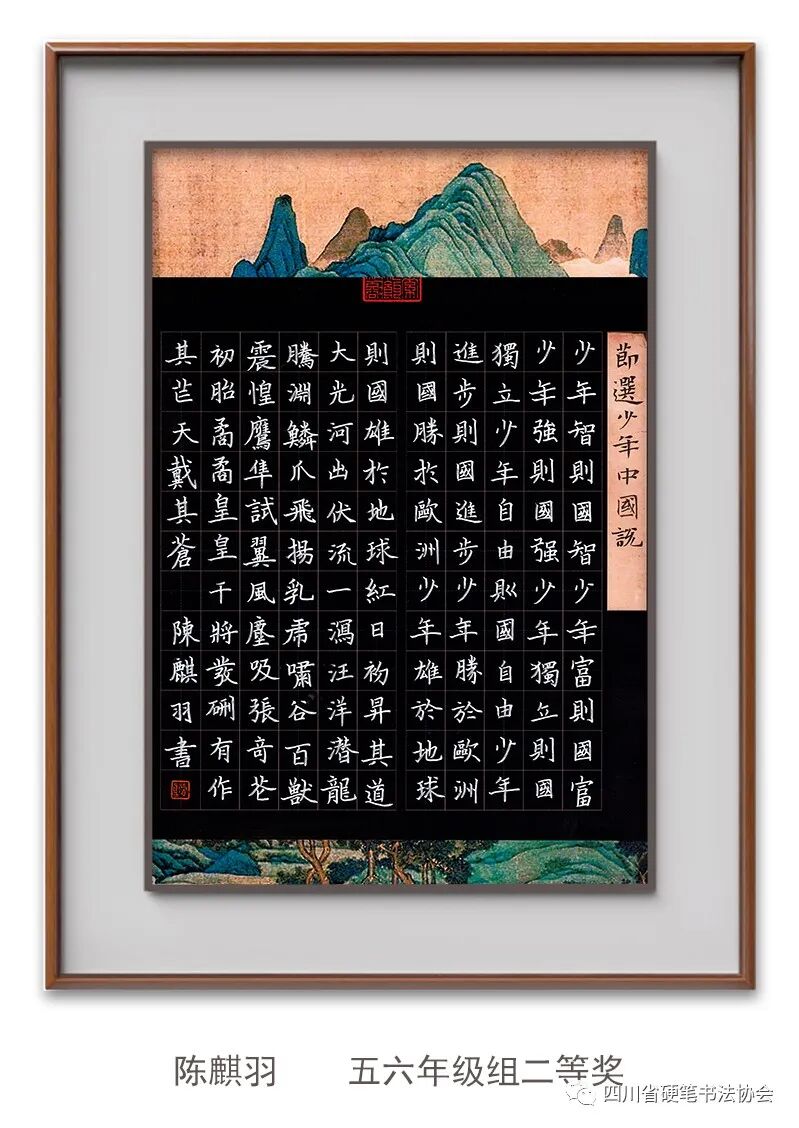 節選少年中國說
少年智則國智少年富則國富
少年強則國强少年獨立則國
獨立少年自由則國自由少年
進步則國進步少年勝於歐洲
則國勝於歐洲少年雄於地球
則國雄於地球紅日初昇其道
大光河出伏流一瀉汪洋潛龍
騰淵鱗爪飛揚乳虎嘯谷百獸
震惶鷹隼試翼風塵吸張奇花
初胎矞矞皇皇干將發硎有作
其芒天戴其蒼 陳麒羽書
陈麒羽 五六年级组二等奖
四川省硬笔书法协会